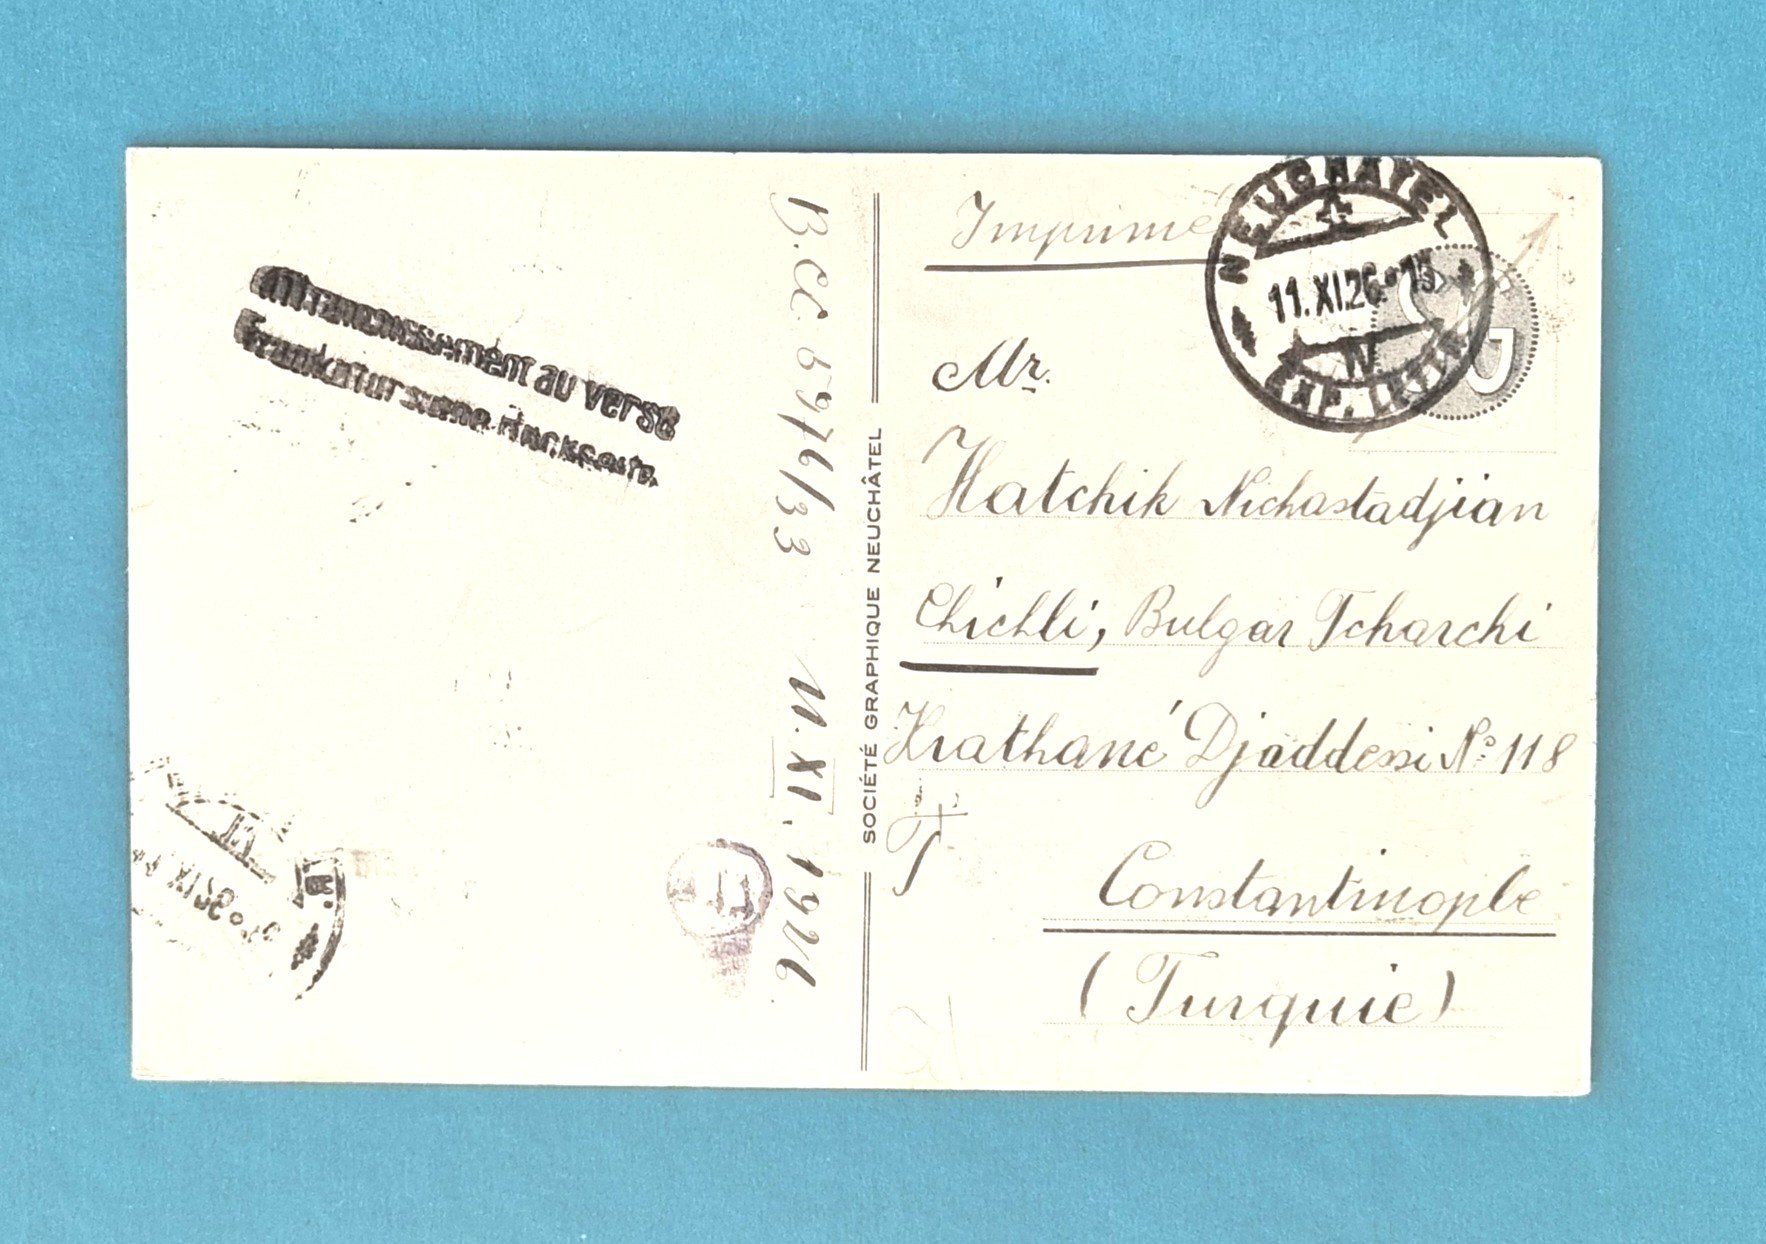 Affranchissement au verso
Frankatur siehe Rückseite.
B. CC 5976/33 11.XI.1926.
SOCIÉTÉ GRAPHIQUE NEUCHÂTEL
Imprimé
NEUCHATEL
11.XI.26.-13
IV
EXP. LETTR.
SG
Mr.
Hatchik Nichastadjian
Chichli, Bulgar Tcharchi
Kiathané Djaddessi No 118
T
Constantinople
(Turquie)